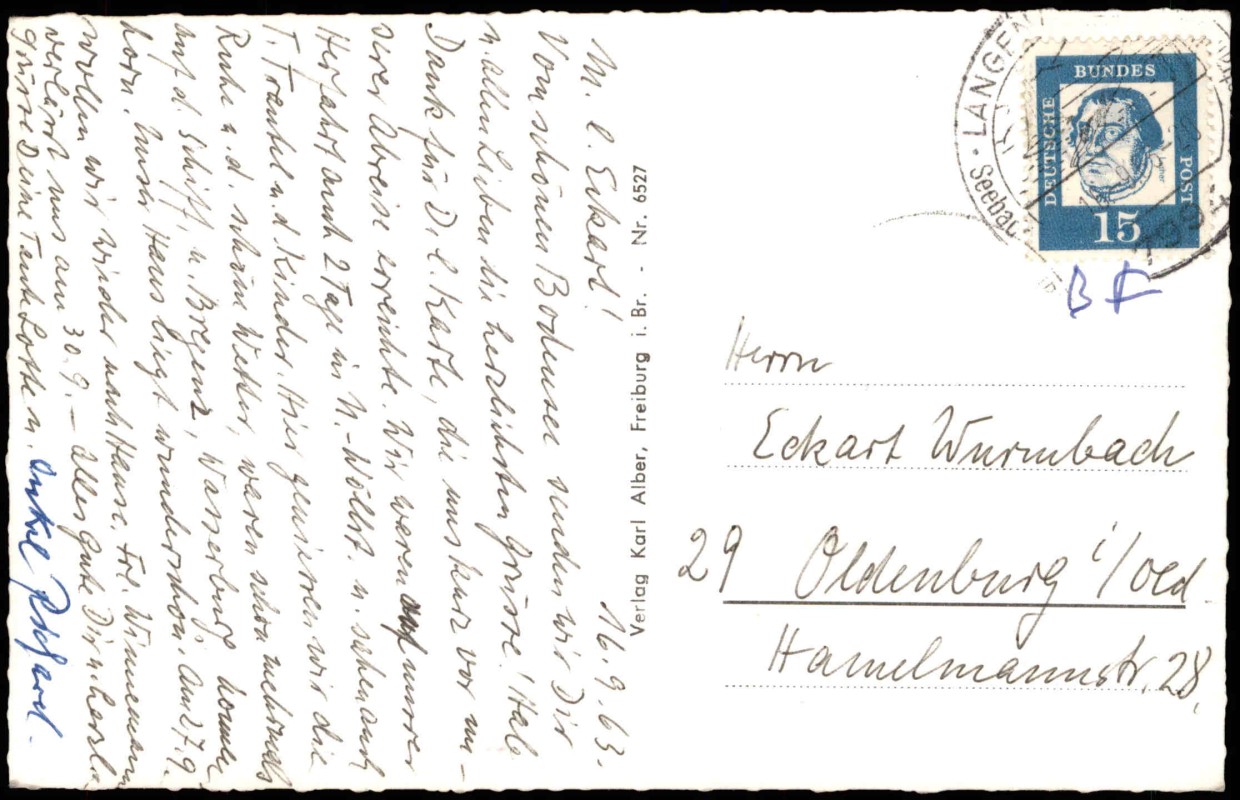 16.9.63.
M. l. Eckart!
Vom schönen Bodensee senden wir Dir
u. allen Lieben die herzlichsten Grüsse! Hab
Dank für D. l. Karte, die uns kurz vor un-
serer Abreise erreichte. Wir waren auf unserer
Herfahrt auch 2 Tage in N.-Wöllst. u. sahen auch
T. Franzel u. d. Kinder. Hier geniessen wir die
Ruhe u. d. schöne Wetter, waren schon mehrmals
auf d. Schiff, u. Bregenz, Wasserburg,
horn. Unser Haus liegt wunderschön. Am 27.9.
wollen wir wieder nach Hause. Frl. Winnemann
verlässt uns am 30.9. – Alles Gute Dir u. herzl.
Grüsse Deine Tante Lotte u. Onkel Richard.
Verlag Karl Alber, Freiburg i. Br. - Nr. 6527
LANGEN
Seebad
7994
DEUTSCHE BUNDES POST
15
BF
Herrn
Eckart Wurmbach
29 Oldenburg i/Old
Hamelmannstr. 28.